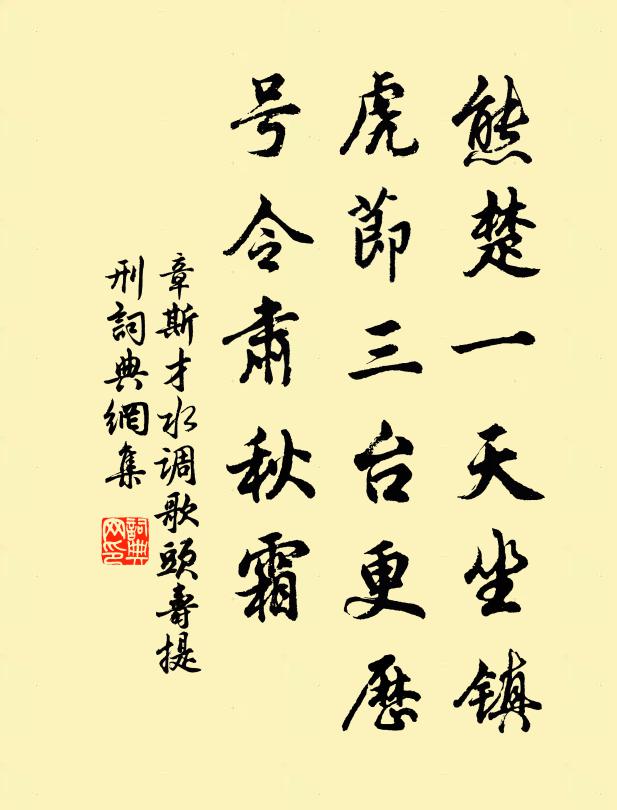 熊楚一天坐镇
虎節三台更歷
号令肅秋霜
章斯才水调歌頭壽提
刑詞典網集
詞典網印